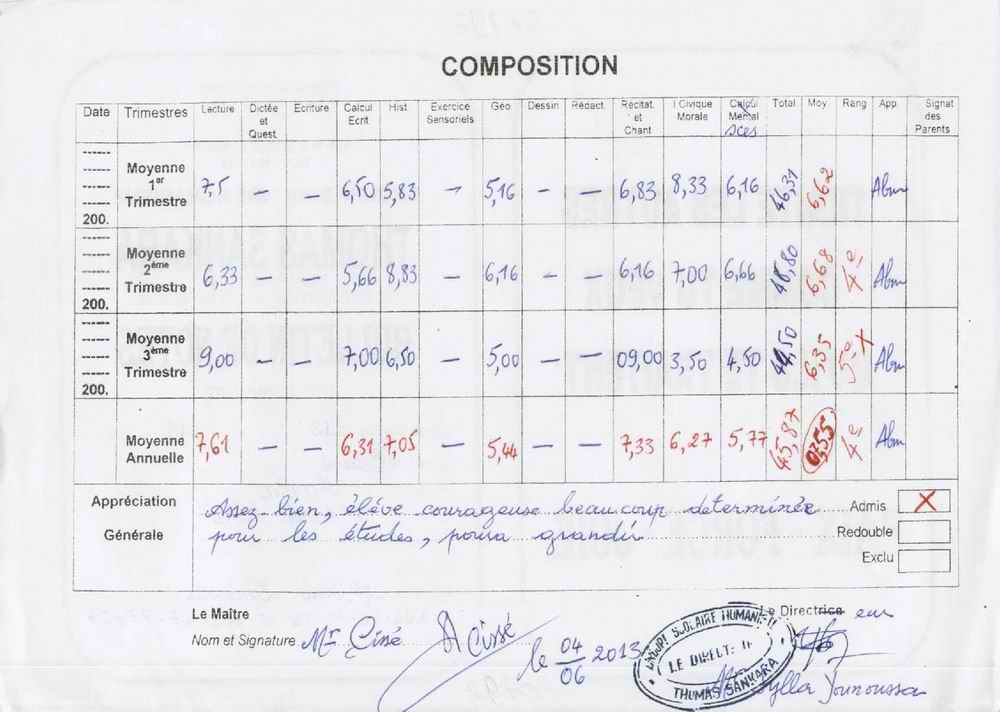 COMPOSITION
Date Trimestres Lecture Dictée et Quest Ecriture Calcul Ecrit Hist Exercice Sensoriels Geo Dessin Rédact. Récitat et Chant I Civique Morale Calcul Mental Sces Total Moy Rang App. Signat des Parents
200. Moyenne 1er Trimestre 7,5 – – 6,50 5,83 – 5,16 – – 6,83 8,33 6,16 46,31 6,62 Abn
200. Moyenne 2ème Trimestre 6,33 – – 5,66 8,83 – 6,16 – – 6,16 7,00 6,66 6,68 4e Abn
200. Moyenne 3ème Trimestre 9,00 – – 7,00 6,50 – 5,00 – – 09,00 3,50 4,50 44,50 6,35 5e Abn
Moyenne Annuelle 7,61 – – 6,31 7,05 – 5,44 – – 7,33 6,27 5,77 45,87 4e Abn
Appréciation Générale
Assez-bien, élève courageuse beaucoup determinée
pour les études, poura grandir
Admis X
Redouble
Exclu
Le Maître
Nom et Signature Mr Cissé A Cissé
le 04/06 2013
Le Directrice eur
GROUPE SCOLAIRE HUMANI
LE DIRECT
THOMAS SANKARA
Sylla Younoussa